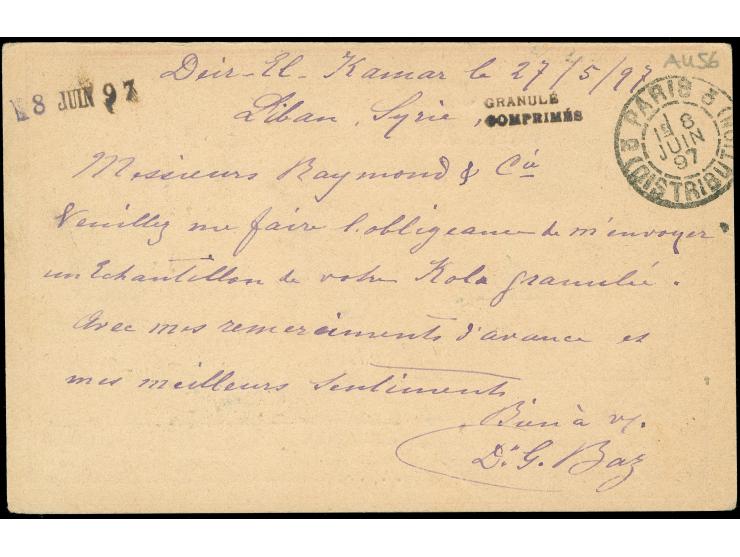 AU56
Deir-El-Kamar le 27/5/97
8 JUIN 97
Liban, Syrie,
GRANULÉ
COMPRIMÉS
PARIS
8
JUIN
97
(DISTRIBUTIO
Messieurs Raymond & Cie
Veuillez me faire l'obligeance de m'envoyer
un Echantillon de votre Kola granulée.
Avec mes remerciments d'avance et
mes meilleurs sentiments
Bien à v.
Dr G. Baz